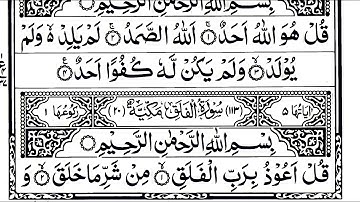 بِسْمِ اللهِ الرَّحْمٰنِ الرَّحِيْمِ
قُلْ هُوَ اللهُ اَحَدٌ ۚ۝۱ اَللهُ الصَّمَدُ ۚ۝۲ لَمْ يَلِدْ ۙ وَلَمْ
يُوْلَدْ ۙ۝۳ وَلَمْ يَكُنْ لَّهٗ كُفُوًا اَحَدٌ ۝۴
اٰيَاتُهَا ۵ (۱۱۳) سُوْرَةُ الْفَلَقِ مَكِّيَّةٌ (۲۰) رُكُوْعُهَا ۱
بِسْمِ اللهِ الرَّحْمٰنِ الرَّحِيْمِ
قُلْ اَعُوْذُ بِرَبِّ الْفَلَقِ ۙ۝۱ مِنْ شَرِّ مَا خَلَقَ ۙ۝۲ وَ